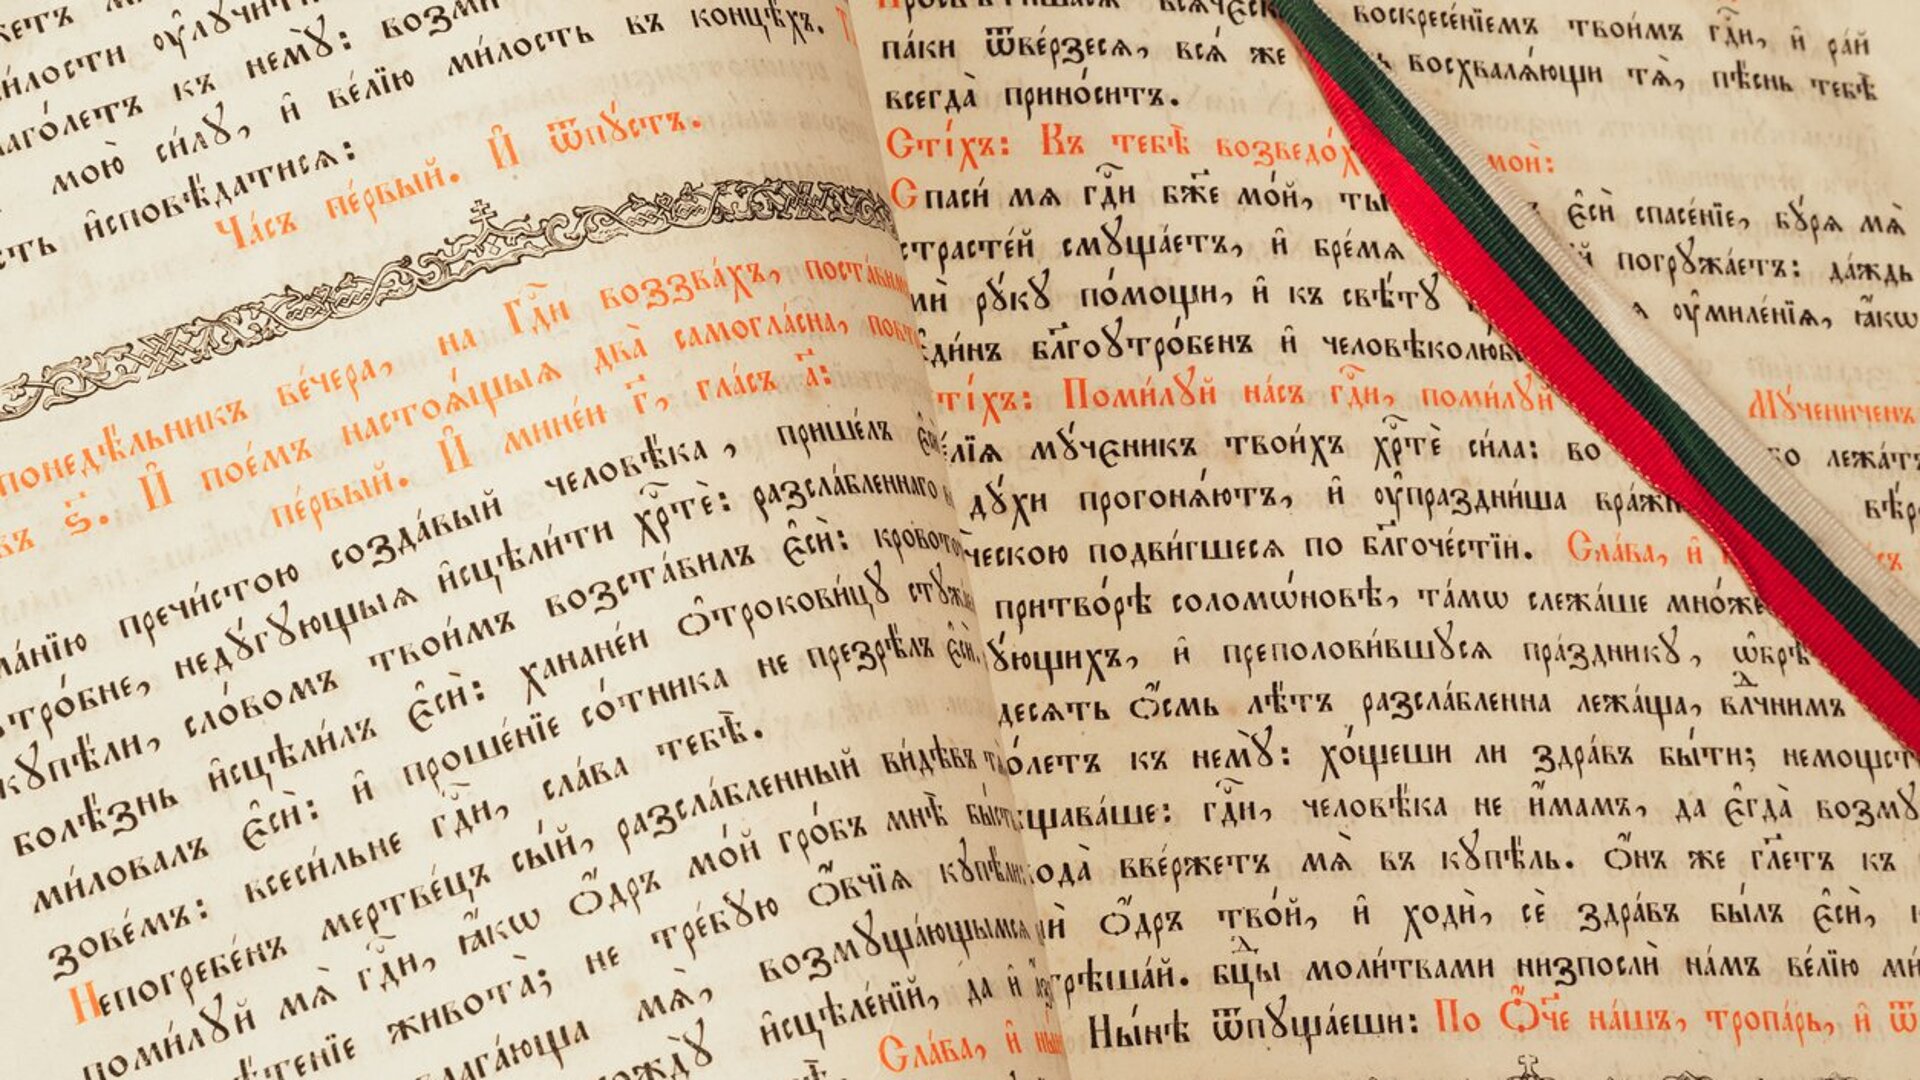 милости ᲂу҆лꙋчити
глаго́летъ къ немꙋ̀: возми
мою̀ си́лꙋ, и҆ ве́лїю ми́лость въ конц҄ѣхъ.
и҆сповѣ́датисѧ:
Ча́съ пе́рвый. И҆ ѿпꙋ́стъ.
понедѣ́льникъ ве́чера, на Гдⷭ҇и воззва́хъ, поста́вимъ
въ ѕ҃. И҆ пое́мъ настоѧ́щыѧ два̀ самогла́сна,
пе́рвый. И҆ мине́и г҃, гла́съ а҃:
пречи́стою созда́вый человѣ́ка, пришéлъ є҆сѝ
недꙋ́гꙋющыѧ и҆сцѣли́ти хрⷭ҇тѐ: разсла́бленнаго
кꙋпѣ́ли, сло́вомъ твои́мъ возста́вилъ є҆сѝ:
болѣ́знь и҆сцѣли́лъ є҆сѝ: ханане́и ѻ҆трокови́цꙋ
ми́ловалъ є҆сѝ: и҆ проше́нїе со́тника не презрѣ́лъ є҆сѝ.
зове́мъ: всеси́льне гдⷭ҇и, сла́ва тебѣ̀.
Непогребе́нъ мертве́цъ сы́й, разсла́бленный ви́дѣвъ
поми́лꙋй мѧ̀ гдⷭ҇и, ꙗ҆́кѡ ѻ҆́дръ мо́й гро́бъ мнѣ̀ бы́сть
живота̀; не тре́бꙋю ѻ҆́вчїѧ кꙋпѣ́ли:
мѧ̀, возмꙋща́ющымсѧ
и҆сцѣле́нїй, да и҆
Сла́ва, и҆ ны́нѣ
па́ки ѿве́рзесѧ, всѧ́ же
всегда̀ прино́ситъ.
воскресе́нїемъ твои́мъ гдⷭ҇и, и҆ ра́й
восхвалѧ́ющи тѧ̀, пѣ́снь тебѣ̀
Сті́хъ: Къ тебѣ̀ возведо́хъ мои̑:
Спаси́ мѧ гдⷭ҇и бж҃е мо́й, ты̀ є҆сѝ спасе́нїе, бꙋ́рѧ мѧ̀
страсте́й смꙋща́етъ, и҆ бре́мѧ погрꙋжа́етъ: да́ждь
ми рꙋ́кꙋ по́мощи, и҆ къ свѣ́тꙋ ᲂу҆миле́нїѧ, ꙗ҆́кѡ
є҆ди́нъ бл҃гоꙋтро́бенъ и҆ человѣколю́бецъ
Сті́хъ: Поми́лꙋй на́съ гдⷭ҇и, поми́лꙋй Мꙋ́чениченъ
ве́лїѧ мꙋ́чєникъ твои́хъ хрⷭ҇тѐ си́ла: во лежа́тъ
дꙋ́хи прогонѧ́ютъ, и҆ ᲂу҆праздни́ша вра́жїю
подви́гшесѧ по бл҃гоче́стїи. Сла́ва, и҆
притво́рѣ соломѡ́новѣ, та́мѡ слежа́ше мно́жество
и҆ преполови́вшꙋсѧ пра́здникꙋ, ѡ҆брѣ́те
десѧть ѻ҆́смь лѣ́тъ разсла́бленна лежа́ща, влⷣчнимъ
глаго́летъ къ немꙋ̀: хо́щеши ли здра́въ бы́ти; немощствꙋѧй
ѿвѣщава́ше: гдⷭ҇и, человѣ́ка не и҆́мамъ, да є҆гда̀ возмꙋти́тсѧ
вода̀ вве́ржетъ мѧ̀ въ кꙋпѣ́ль. Ѻ҆́нъ же гл҃етъ къ
ѻ҆́дръ тво́й, и҆ ходѝ, сѐ здра́въ бы́лъ є҆сѝ,
согрѣша́й. бцⷣы моли́твами низпослѝ на́мъ ве́лїю ми́лость
Ны́нѣ ѿпꙋща́еши: По Ѻ҆́ч҃е на́шъ, тропа́рь, и҆ ѿ